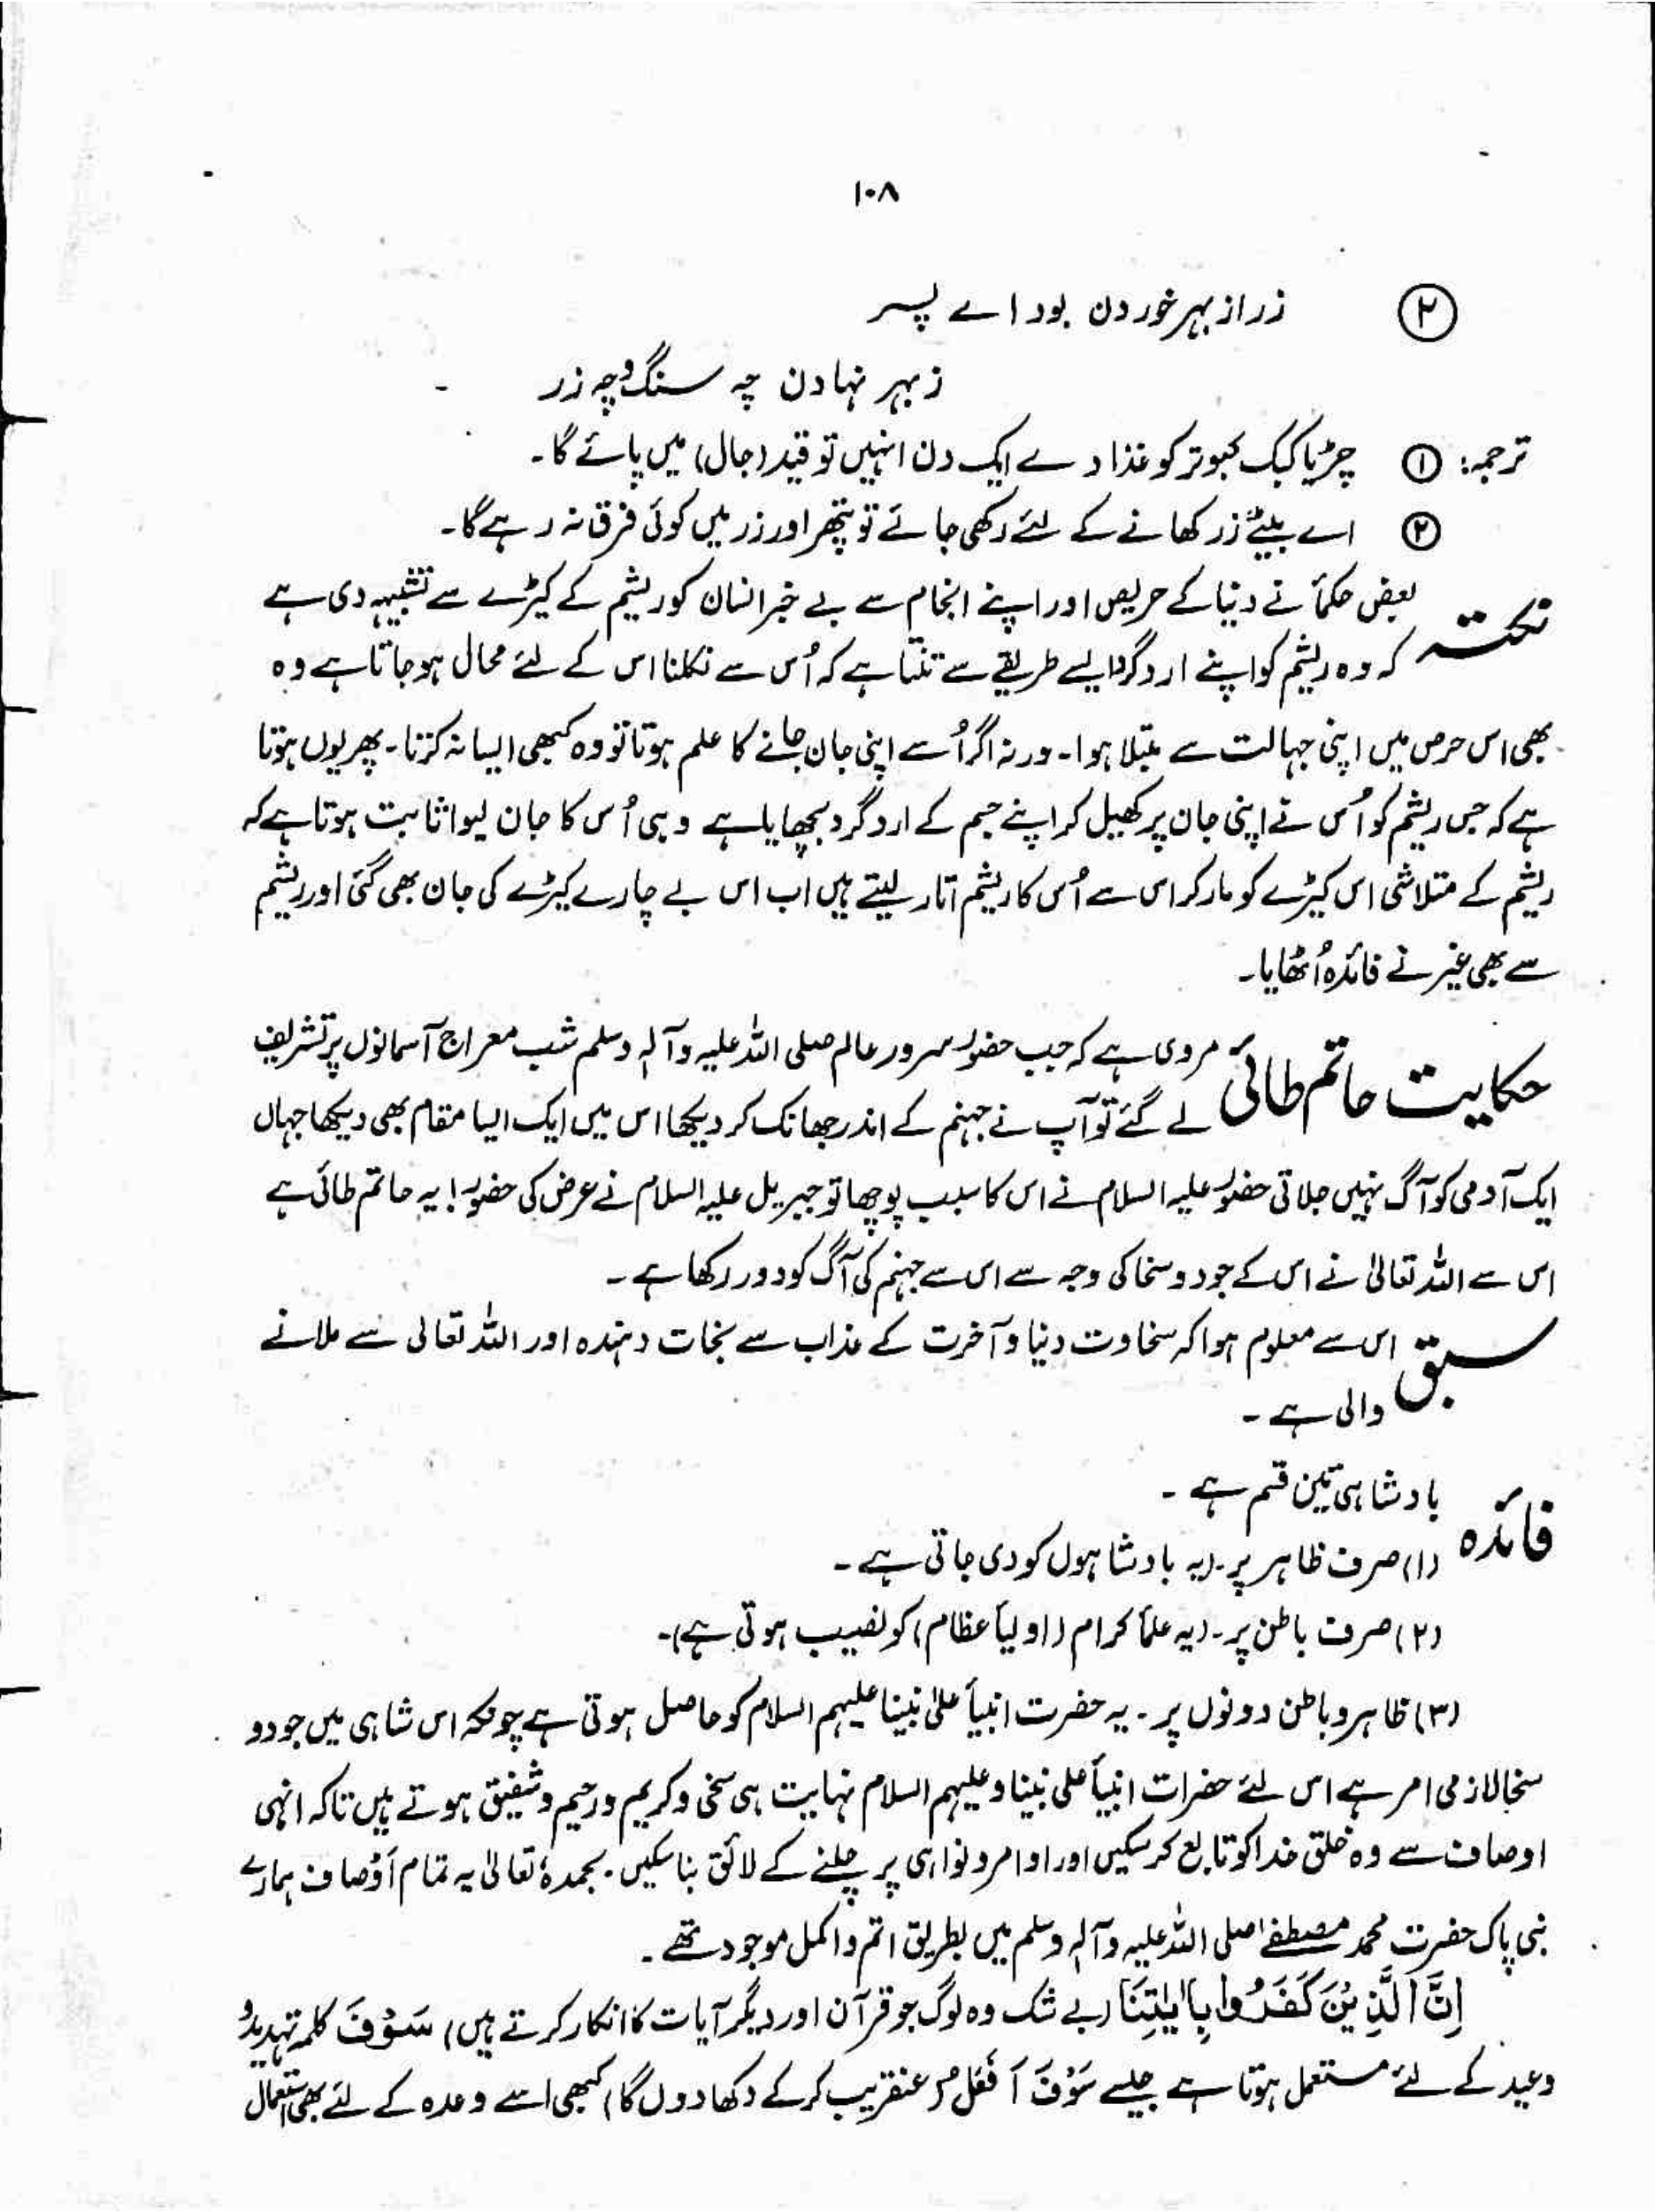 ۱۰۸
② زر از بہر خوردن بود اے پسر
ز بہر نہادن چہ سنگ وچہ زر
ترجمہ: ① چڑیا کبک کبوتر کو غذا دے ایک دن انہیں تو قید (جال) میں پائے گا۔
② اے بیٹے زر کھانے کے لئے رکھی جائے تو پتھر اور زر میں کوئی فرق نہ رہے گا۔
نکتہ بعض حکمأ نے دنیا کے حریص اور اپنے انجام سے بے خبر انسان کو ریشم کے کیڑے سے تشبیہہ دی ہے
کہ وہ ریشم کو اپنے ارد گرد ایسے طریقے سے تنتا ہے کہ اُس سے نکلنا اس کے لئے محال ہو جاتا ہے وہ
بھی اس حرص میں اپنی جہالت سے مبتلا ہوا۔ ورنہ اگر اُسے اپنی جان جانے کا علم ہوتا تو وہ کبھی ایسا نہ کرتا۔ پھر یوں ہوتا
ہے کہ جس ریشم کو اُس نے اپنی جان پر کھیل کر اپنے جسم کے ارد گرد بچھایا ہے وہی اُس کا جان لیوا ثابت ہوتا ہے کہ
ریشم کے متلاشی اس کیڑے کو مار کر اس سے اُس کا ریشم اتار لیتے ہیں اب اس بے چارے کیڑے کی جان بھی گئی اور ریشم
سے بھی غیر نے فائدہ اُٹھایا۔
حکایت حاتم طائی مروی ہے کہ جب حضور سرور عالم صلی اللہ علیہ وآلہ وسلم شب معراج آسمانوں پر تشریف
لے گئے تو آپ نے جہنم کے اندر جھانک کر دیکھا اس میں ایک ایسا مقام بھی دیکھا جہاں
ایک آدمی کو آگ نہیں جلاتی حضور علیہ السلام نے اس کا سبب پوچھا تو جبریل علیہ السلام نے عرض کی حضور! یہ حاتم طائی ہے
اس سے اللہ تعالیٰ نے اس کے جود و سخا کی وجہ سے اس سے جہنم کی آگ کو دور رکھا ہے۔
سبق اس سے معلوم ہوا کہ سخاوت دنیا و آخرت کے عذاب سے نجات دہندہ اور اللہ تعالی سے ملانے
والی ہے۔
فائدہ بادشاہی تین قسم ہے۔
(۱) صرف ظاہر پر۔ (یہ بادشاہوں کو دی جاتی ہے۔
(۲) صرف باطن پر۔ (یہ علمأ کرام (اولیأ عظام) کو نصیب ہوتی ہے)۔
(۳) ظاہر و باطن دونوں پر۔ یہ حضرت انبیأ علیٰ نبینا علیہم السلام کو حاصل ہوتی ہے چونکہ اس شاہی میں جود و
سخا لازمی امر ہے اس لئے حضرات انبیأ علی نبینا وعلیہم السلام نہایت ہی سخی و کریم و رحیم و شفیق ہوتے ہیں تاکہ انہی
اوصاف سے وہ خلق خدا کو تابع کر سکیں اور اوامر و نواہی پر چلنے کے لائق بنا سکیں۔ بحمدہٖ تعالیٰ یہ تمام اَوْصاف ہمارے
نبی پاک حضرت محمد مصطفےٰ صلی اللہ علیہ وآلہ وسلم میں بطریق اتم و اکمل موجود تھے۔
اِنَّ الَّذِیْنَ کَفَرُوا بِاٰیٰتِنَا (بے شک وہ لوگ جو قرآن اور دیگر آیات کا انکار کرتے ہیں) سَوْفَ کلمہ تہدید و
وعید کے لئے مستعمل ہوتا ہے جیسے سَوْفَ اَفْعَلُ (عنقریب کر کے دکھا دوں گا) کبھی اسے وعدہ کے لئے بھی استعمال